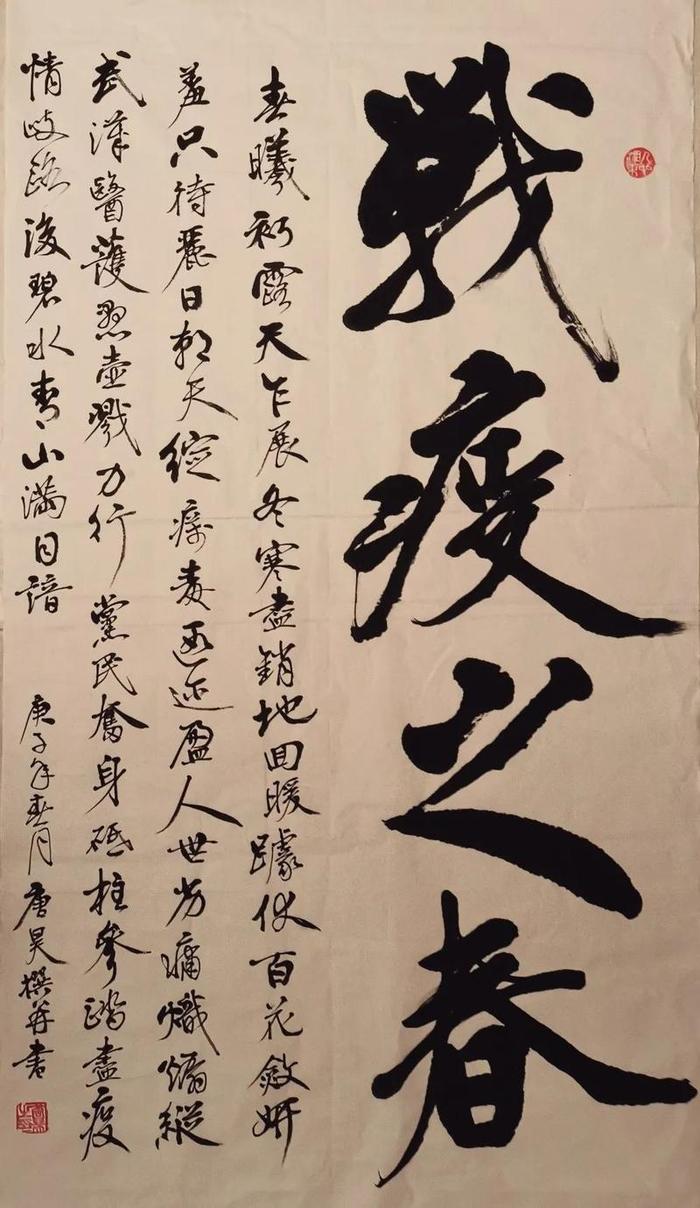 戰疫之春
春曦初露天乍展冬寒盡銷地回暖躑伎百花斂妍
羞只待麗日朝天綻瘴毒逐逝盈人世勞痛熾熘縱
武漢醫護懸壺戮力行黨民奮身砥柱參踏盡疫
情歧路後碧水青山滿目諳
庚子年春月唐昊撰并書